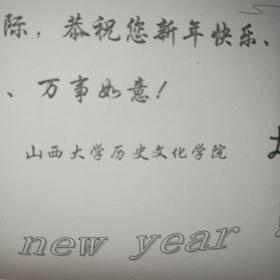 际，恭祝您新年快乐、
、万事如意！
山西大学历史文化学院
new year